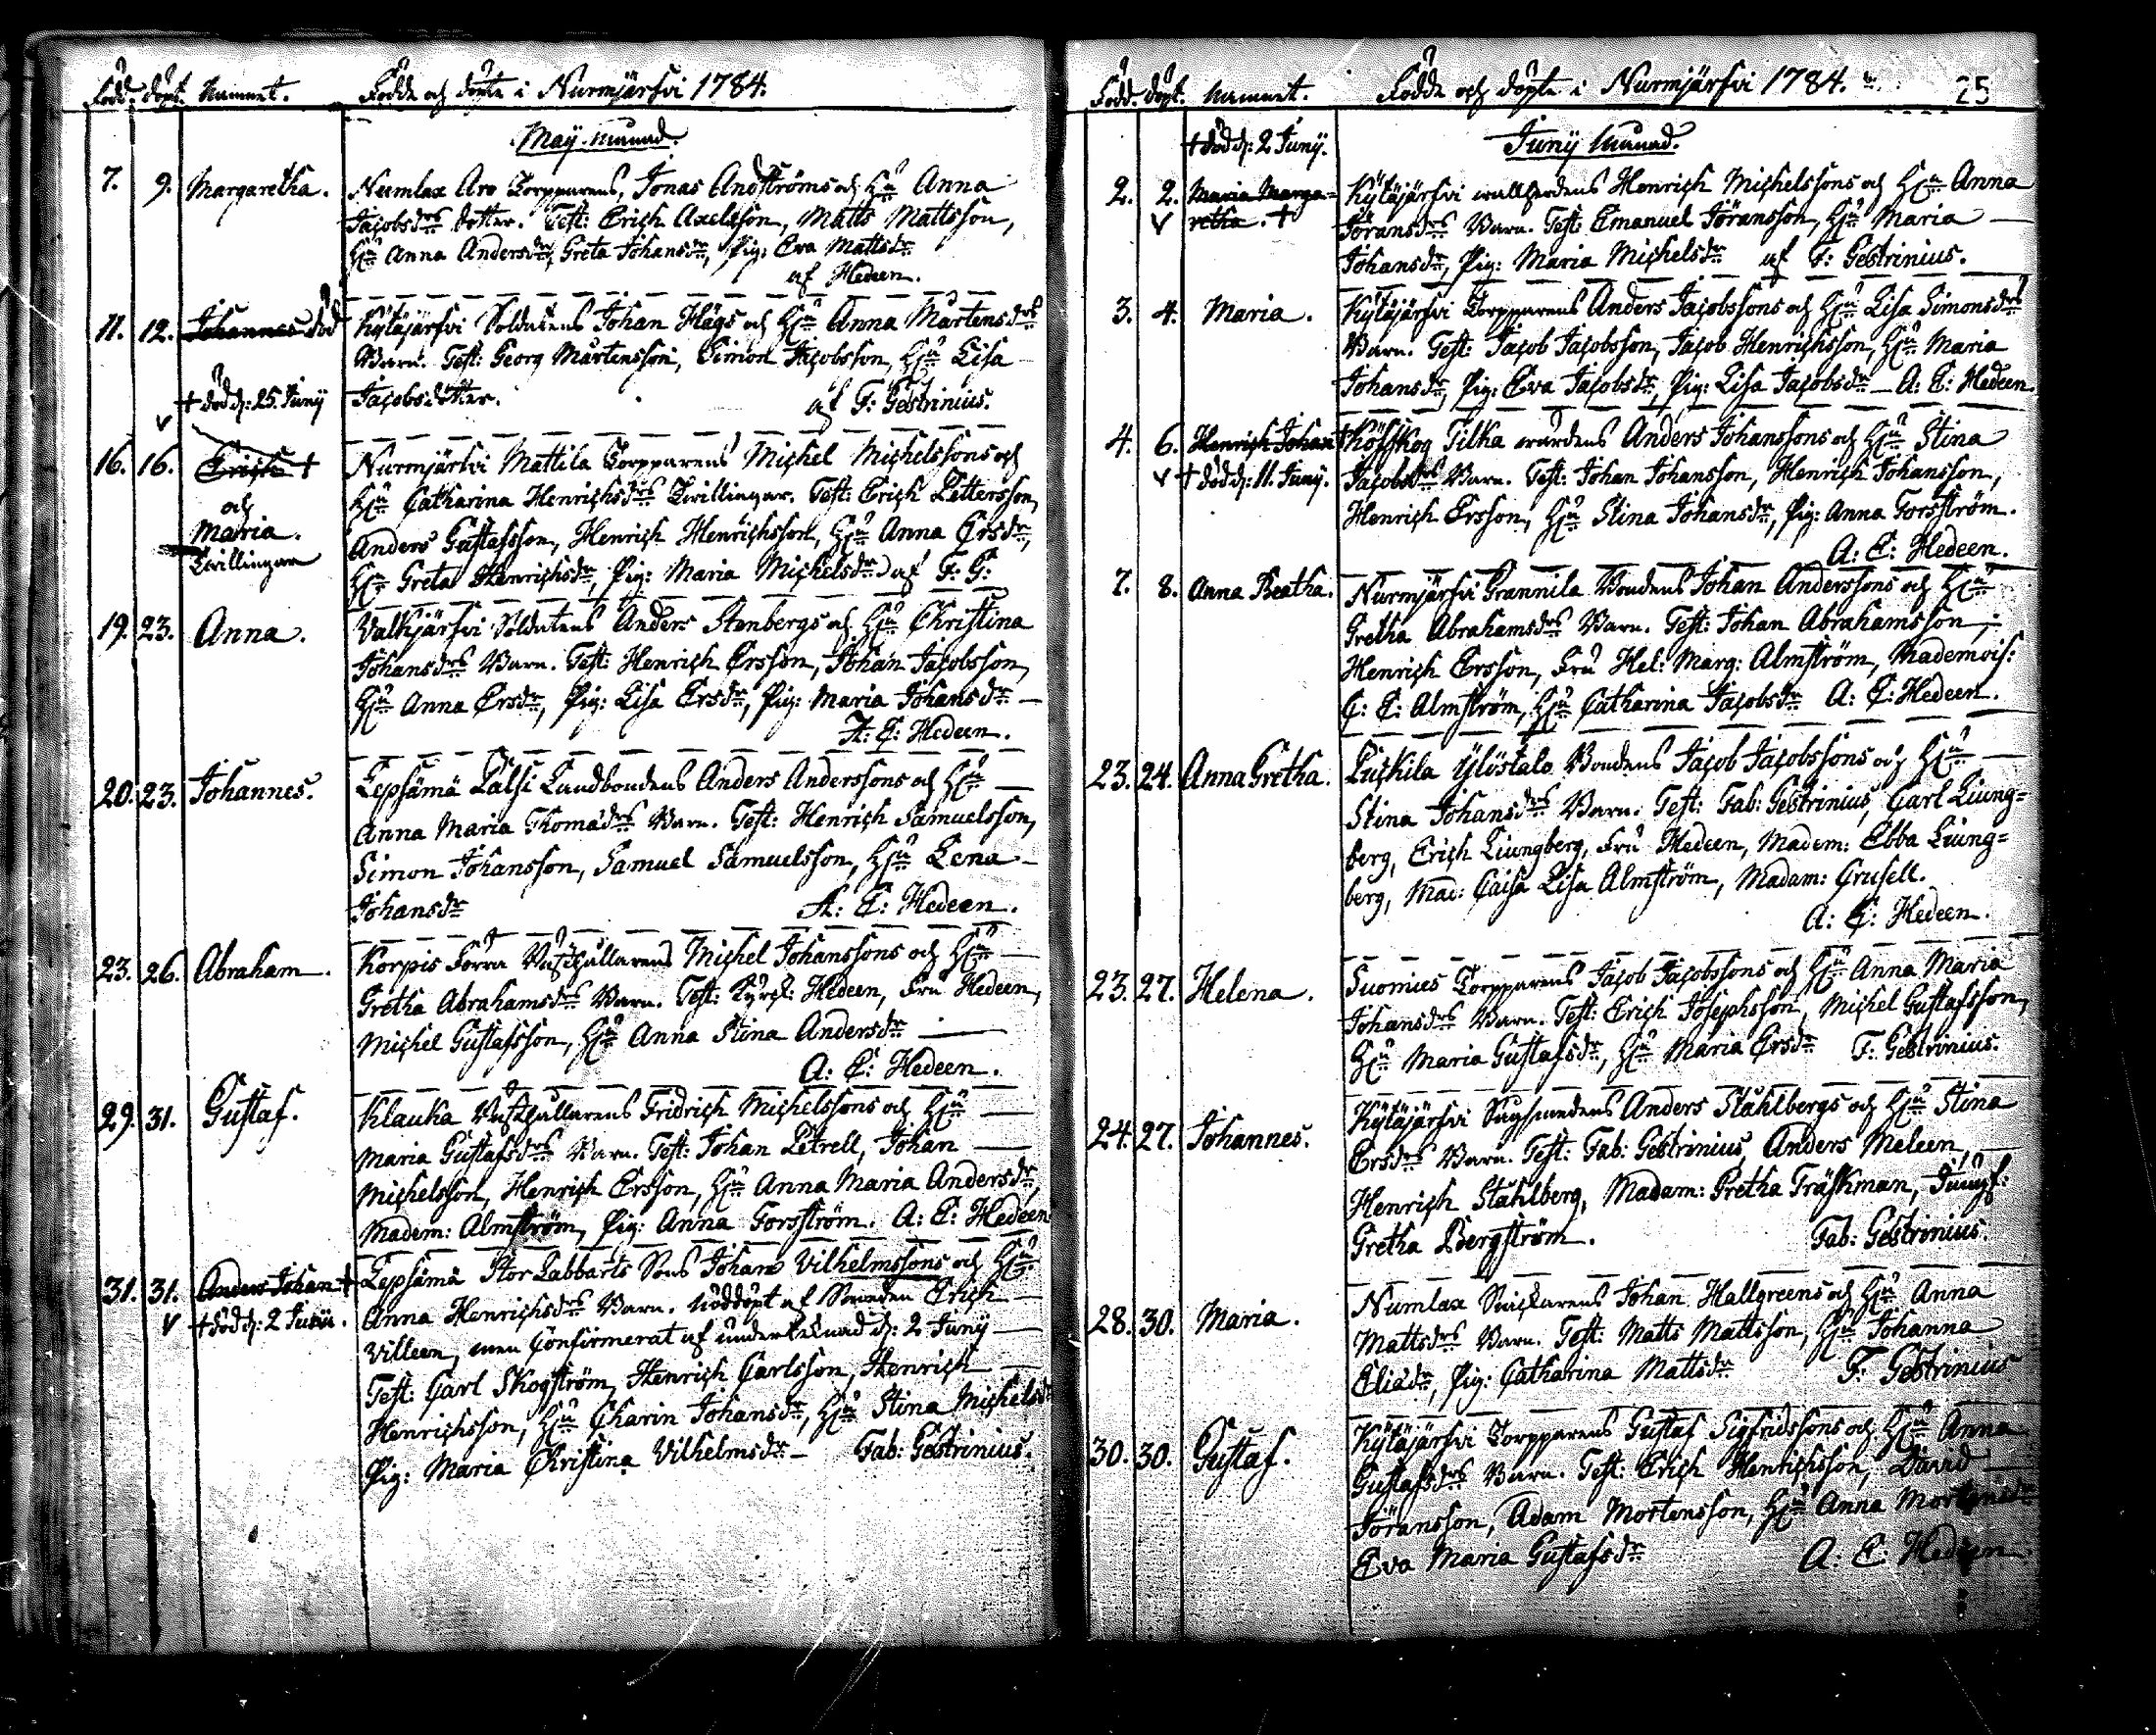 Född. döpt. Namnet. Födde och döpte i Nurmjärfvi 1784.
May-månad.
7. 9. Margaretha. Numlax Aro Torpparens, Jonas Andströms och Hju Anna
Jacobsdrs dotter. Test: Erich Axelsson, Matts Mattsson,
Hju Anna Andersdr, Greta Johansdr, Pig: Eva Mattsdr
af Hedeen.
11. 12. Johannes död Kytäjärfvi Soldatens Johan Hägs och Hju Anna Mårtensdrs
Barn. Test: Georg Mårtensson, Simon Jacobsson, Hju Lisa
† död d: 25 Juny Jacobsdotter. af F: Gestrinius.
16. 16. Erich † Nurmjärfvi Mattila Torpparens Michel Michelssons och
och Hju Catharina Henrichsdrs Tvillingar. Test: Erich Pettersson,
Maria. Anders Gustafsson, Henrich Henrichsson, Hju Anna Ersdr,
Tvillingar Hju Greta Henrichsdr, Pig: Maria Michelsdr af F: G:
19. 23. Anna. Valkjärfvi Soldatens Anders Stenbergs och Hju Christina
Johansdrs Barn. Test: Henrich Ersson, Johan Jacobsson,
Hju Anna Ersdr, Pig: Lisa Ersdr, Pig: Maria Johansdr
A: E: Hedeen.
20. 23. Johannes. Lepsämä Lalsi Landbondens Anders Anderssons och Hju
Anna Maria Thomædrs Barn. Test: Henrich Samuelsson,
Simon Johansson, Samuel Samuelsson, Hju Lena
Johansdr A: E: Hedeen.
23. 26. Abraham. Korpis Forra Michel Johanssons och Hju
Gretha Abrahamsdrs Barn. Test: Kyrck: Hedeen, Fru Hedeen,
Michel Gustafsson, Hju Anna Stina Andersdr
A: E: Hedeen.
29. 31. Gustaf. Klauka Fridrich Michelssons och Hju
Maria Gustafsdrs Barn. Test: Johan Petrell, Johan
Michelsson, Henrich Ersson, Hju Anna Maria Andersdr,
Madem: Almström, Pig: Anna Forsström. A: E: Hedeen.
31. 31. Anders Johan † Lepsämä Stor Labbarts Sons Johan Vilhelmssons och Hju
V † död d: 2 Junii. Anna Henrichsdrs Barn. Nöddöpt af Smeden Erich
Villeen, men Confirmerat af undertecknad d: 2 Juny
Test: Carl Skogström, Henrich Carlsson, Henrich
Henrichsson, Hju Charin Johansdr, Hju Stina Michelsdr
Pig: Maria Christina Vilhelmsdr Fab: Gestrinius.
Född. döpt. Namnet. Födde och döpte i Nurmjärfvi 1784. 25
† död d: 2 Juny. Juny Månad.
2. 2. Maria Marga= Kytäjärfvi Henrich Michelssons och Hju Anna
V retha. † Jöransdrs Barn. Test: Emanuel Jöransson, Hju Maria
Johansdr, Pig: Maria Michelsdr af F: Gestrinius.
3. 4. Maria. Kytäjärfvi Torpparens Anders Jacobssons och Hju Lisa Simonsdrs
Barn. Test: Jacob Jacobsson, Jacob Henrichsson, Hju Maria
Johansdr, Pig: Eva Jacobsdr, Pig: Lisa Jacobsdr A: E: Hedeen.
4. 6. Henrich Johan † Röfskog Tilka Anders Johanssons och Hju Stina
V † död d: 11. Juny. Jacobsdrs Barn. Test: Johan Johansson, Henrich Johansson,
Henrich Ersson, Hju Stina Johansdr, Pig: Anna Forsström.
A: E: Hedeen.
7. 8. Anna Beatha. Nurmjärfvi Prannila Bondens Johan Anderssons och Hju
Gretha Abrahamsdrs Barn. Test: Johan Abrahamsson,
Henrich Ersson, Fru Hel: Marg: Almström, Mademois:
C: E: Almström, Hju Catharina Jacobsdr A: E: Hedeen.
23. 24. Anna Gretha. Puchkila Ylöstalo Bondens Jacob Jacobssons och Hju
Stina Johansdrs Barn. Test: Fab: Gestrinius, Carl Liung=
berg, Erich Liungberg, Fru Hedeen, Madem: Ebba Liung=
berg, Mad: Caisa Lisa Almström, Madam: Grusell.
A: E: Hedeen.
23. 27. Helena. Suomies Torpparens Jacob Jacobssons och Hju Anna Maria
Johansdrs Barn. Test: Erich Josephsson, Michel Gustafsson,
Hju Maria Gustafsdr, Hju Maria Ersdr F: Gestrinius.
24. 27. Johannes. Kytäjärfvi Anders Ståhlbergs och Hju Stina
Ersdrs Barn. Test: Fab: Gestrinius, Anders Meleen,
Henrich Ståhlberg, Madam: Gretha Träskman, Jungf:
Gretha Bergström. Fab: Gestrinius.
28. 30. Maria. Numlax Snickarens Johan Hallgreens och Hju Anna
Mattsdrs Barn. Test: Matts Mattsson, Hju Johanna
Eliædr, Pig: Catharina Mattsdr F: Gestrinius
30. 30. Gustaf. Kytäjärfvi Torpparens Gustaf Sigfridssons och Hju Anna
Gustafsdrs Barn. Test: Erich Henrichsson, David
Jöransson, Adam Mortensson, Hju Anna Mortensdr
Eva Maria Gustafsdr A: E: Hedeen.